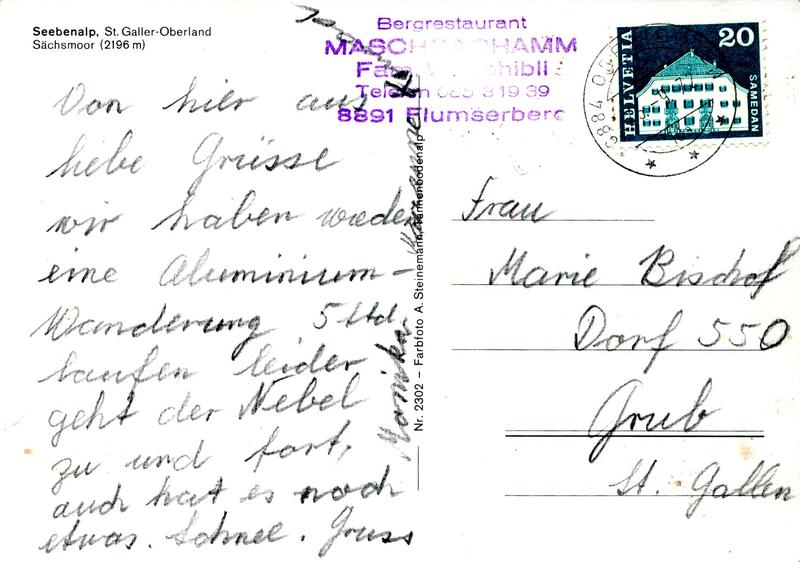 Seebenalp, St. Galler-Oberland
Sächsmoor (2196 m)
Von hier aus
liebe Grüsse
wir haben wieder
eine Aluminium-
Wanderung 5 Std.
laufen leider
geht der Nebel
zu und fort,
auch hat es noch
etwas. Schnee. Gruss
Monika
Nr. 2302 – Farbfoto A. Steinemann, Tannenbodenalp
Bergrestaurant
Fam.
Telefon 085 3 19 39
8891 Flumserberg
HELVETIA
20
SAMEDAN
8884
Frau
Marie Bischof
Dorf 550
Grub
St. Gallen